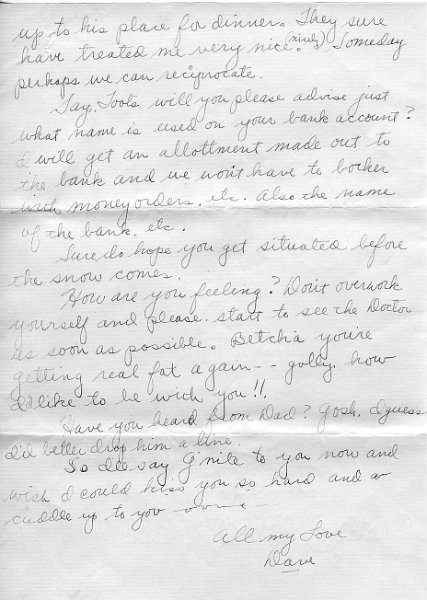 up to his place for dinner. They sure
have treated me very nice. (nicely) Someday
perhaps we can reciprocate.
Say, Toots, will you please advise just
what name is used on your bank account?
I will get an allottment made out to
the bank and we won't have to bother
with money orders, etc. Also the name
of the bank, etc.
Sure do hope you get situated before
the snow comes.
How are you feeling? Don't overwork
yourself and please start to see the Doctor
as soon as possible. Betcha you're
getting real fat again - - golly, how
I'd like to be with you!!
Have you heard from Dad? Gosh, I guess
I'd better drop him a line.
So I'll say G'nite to you now and
wish I could kiss you so hard and
cuddle up to you
All my Love
Dave